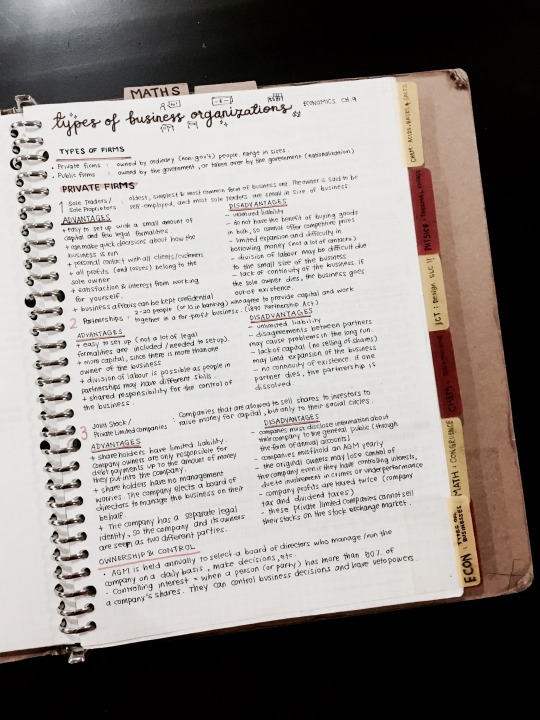 MATHS
types of business organizations
ECONOMICS CH.9
TYPES OF FIRMS
- Private firms : owned by ordinary (non-gov't) people, range in sizes.
- Public firms : owned by the government, or taken over by the government (nationalization)
PRIVATE FIRMS
1 Sole Traders/ Sole Proprietors : oldest, simplest & most common form of business ent. The owner is said to be
self-employed, and most sole traders are small in size of business.
ADVANTAGES
+ easy to set up with a small amount of
capital and few legal formalities.
+ can make quick decisions about how the
business is run
+ personal contact with all clients/customers
+ all profits (and losses) belong to the
sole owner
+ satisfaction & interest from working
for yourself.
+ business affairs can be kept confidential
DISADVANTAGES
- unlimited liability
- do not have the benefit of buying goods
in bulk, so cannot offer competitive prices
- limited expansion and difficulty in
borrowing money (not a lot of contacts)
- division of labour may be difficult due
to the small size of the business
- lack of continuity of the business, if
the sole owner dies, the business goes
out of existence.
2 Partnerships : 2-20 people (or 10 in banking) who agree to provide capital and work
together in a for-profit business. (1890 Partnership Act)
ADVANTAGES
+ easy to set up (not a lot of legal
formalities are included / needed to setup).
+ more capital, since there is more than one
owner of the business
+ division of labour is possible as people in
partnerships may have different skills
+ shared responsibility for the control of
the business.
DISADVANTAGES
- unlimited liability
- disagreements between partners
may cause problems in the long run.
- lack of capital (no selling of shares)
may limit expansion of the business
- no continuity of existence. if one
partner dies, the partnership is
dissolved.
3 Joint Stock / Private Limited Companies : Companies that are allowed to sell shares to investors to
raise money for capital, but only to their social circles.
ADVANTAGES
+ shareholders have limited liability.
Company owners are only responsible for
debt payments up to the amount of money
they put into the company.
+ share holders have no management
worries. The company elects a board of
directors to manage the business on their
behalf.
+ The company has a separate legal
identity, so the company and its owners
are seen as two different parties.
DISADVANTAGES
- companies must disclose information about
their company to the general public (through
the form of annual accounts)
- companies must hold an AGM yearly
- the original owners may lose control of
the company even if they have controlling interests,
due to involvement in crimes or underperformance
- company profits are taxed twice (company
tax and dividend taxes)
- these private limited companies cannot sell
their stocks on the stock exchange market.
OWNERSHIP & CONTROL
- AGM is held annually to select a board of directors who manage / run the
company on a daily basis, make decisions, etc.
- Controlling interest = when a person (or party) has more than 80% of
a company's shares. They can control business decisions and have veto powers.
ICT : DESIGN
MATH : CONGRUENCE
ECON : TYPES OF BUSINESSES